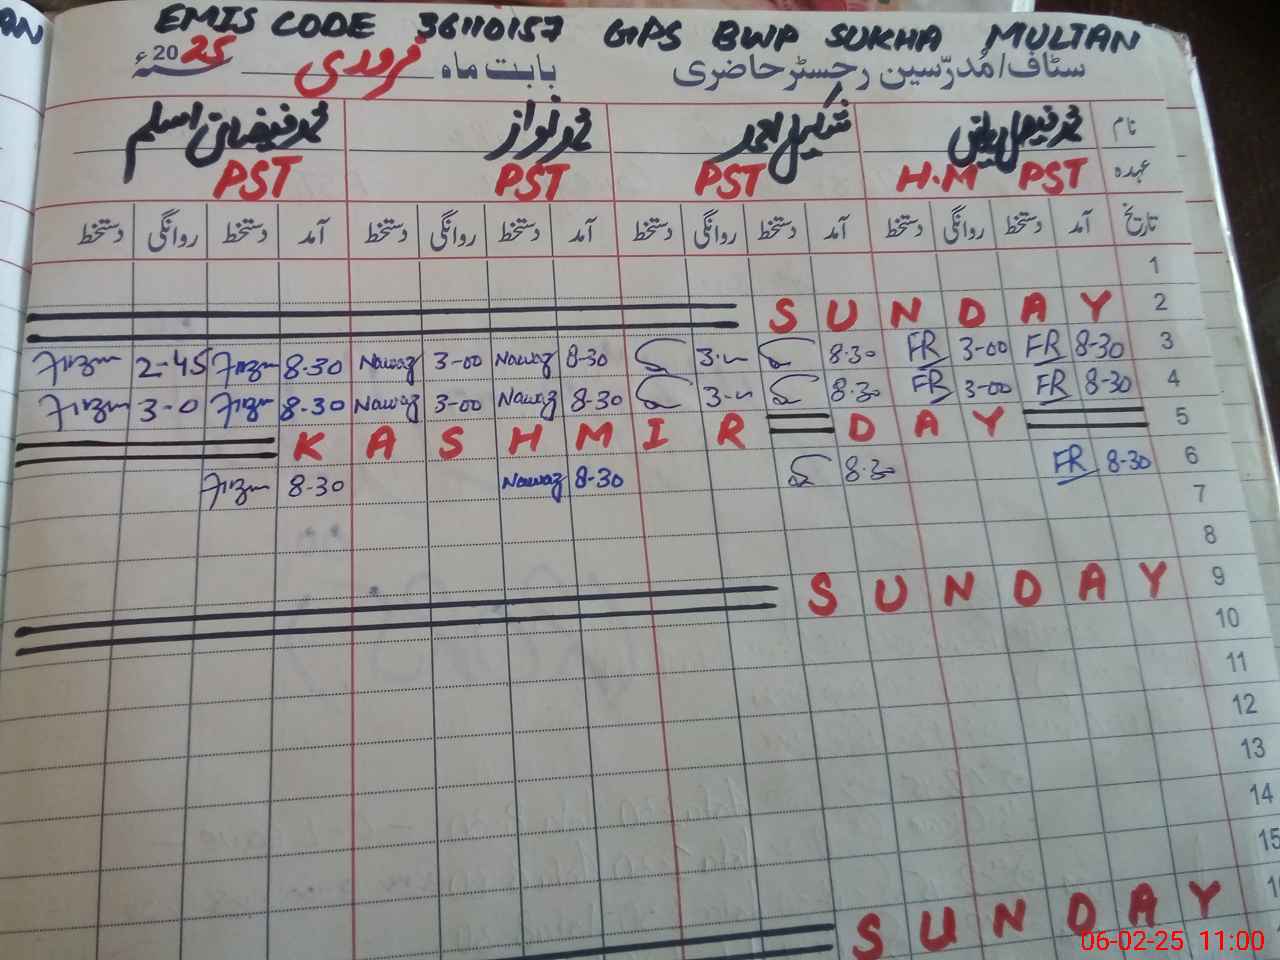 EMIS CODE 36110157 GPS BWP SUKHA MULTAN
سٹاف/مُدرّسین رجسٹر حاضری بابت ماہ فروری 2025ء
نام محمد فیصل ریاض شکیل احمد محمد نواز محمد فیضان اسلم
عہدہ PST H.M PST PST PST
تاریخ آمد دستخط روانگی دستخط آمد دستخط روانگی دستخط آمد دستخط روانگی دستخط آمد دستخط روانگی دستخط
1
2 SUNDAY
3 8-30 FR 3-00 FR 8-30 8-30 Nawaz 3-00 Nawaz 8-30 2-45
4 8-30 FR 3-00 FR 8-30 8-30 Nawaz 3-00 Nawaz 8-30 3-0
5 KASHMIR DAY
6 8-30 FR 8-30 8-30 Nawaz 8-30
7
8
9 SUNDAY
10
11
12
13
14
15
SUNDAY
06-02-25 11:00